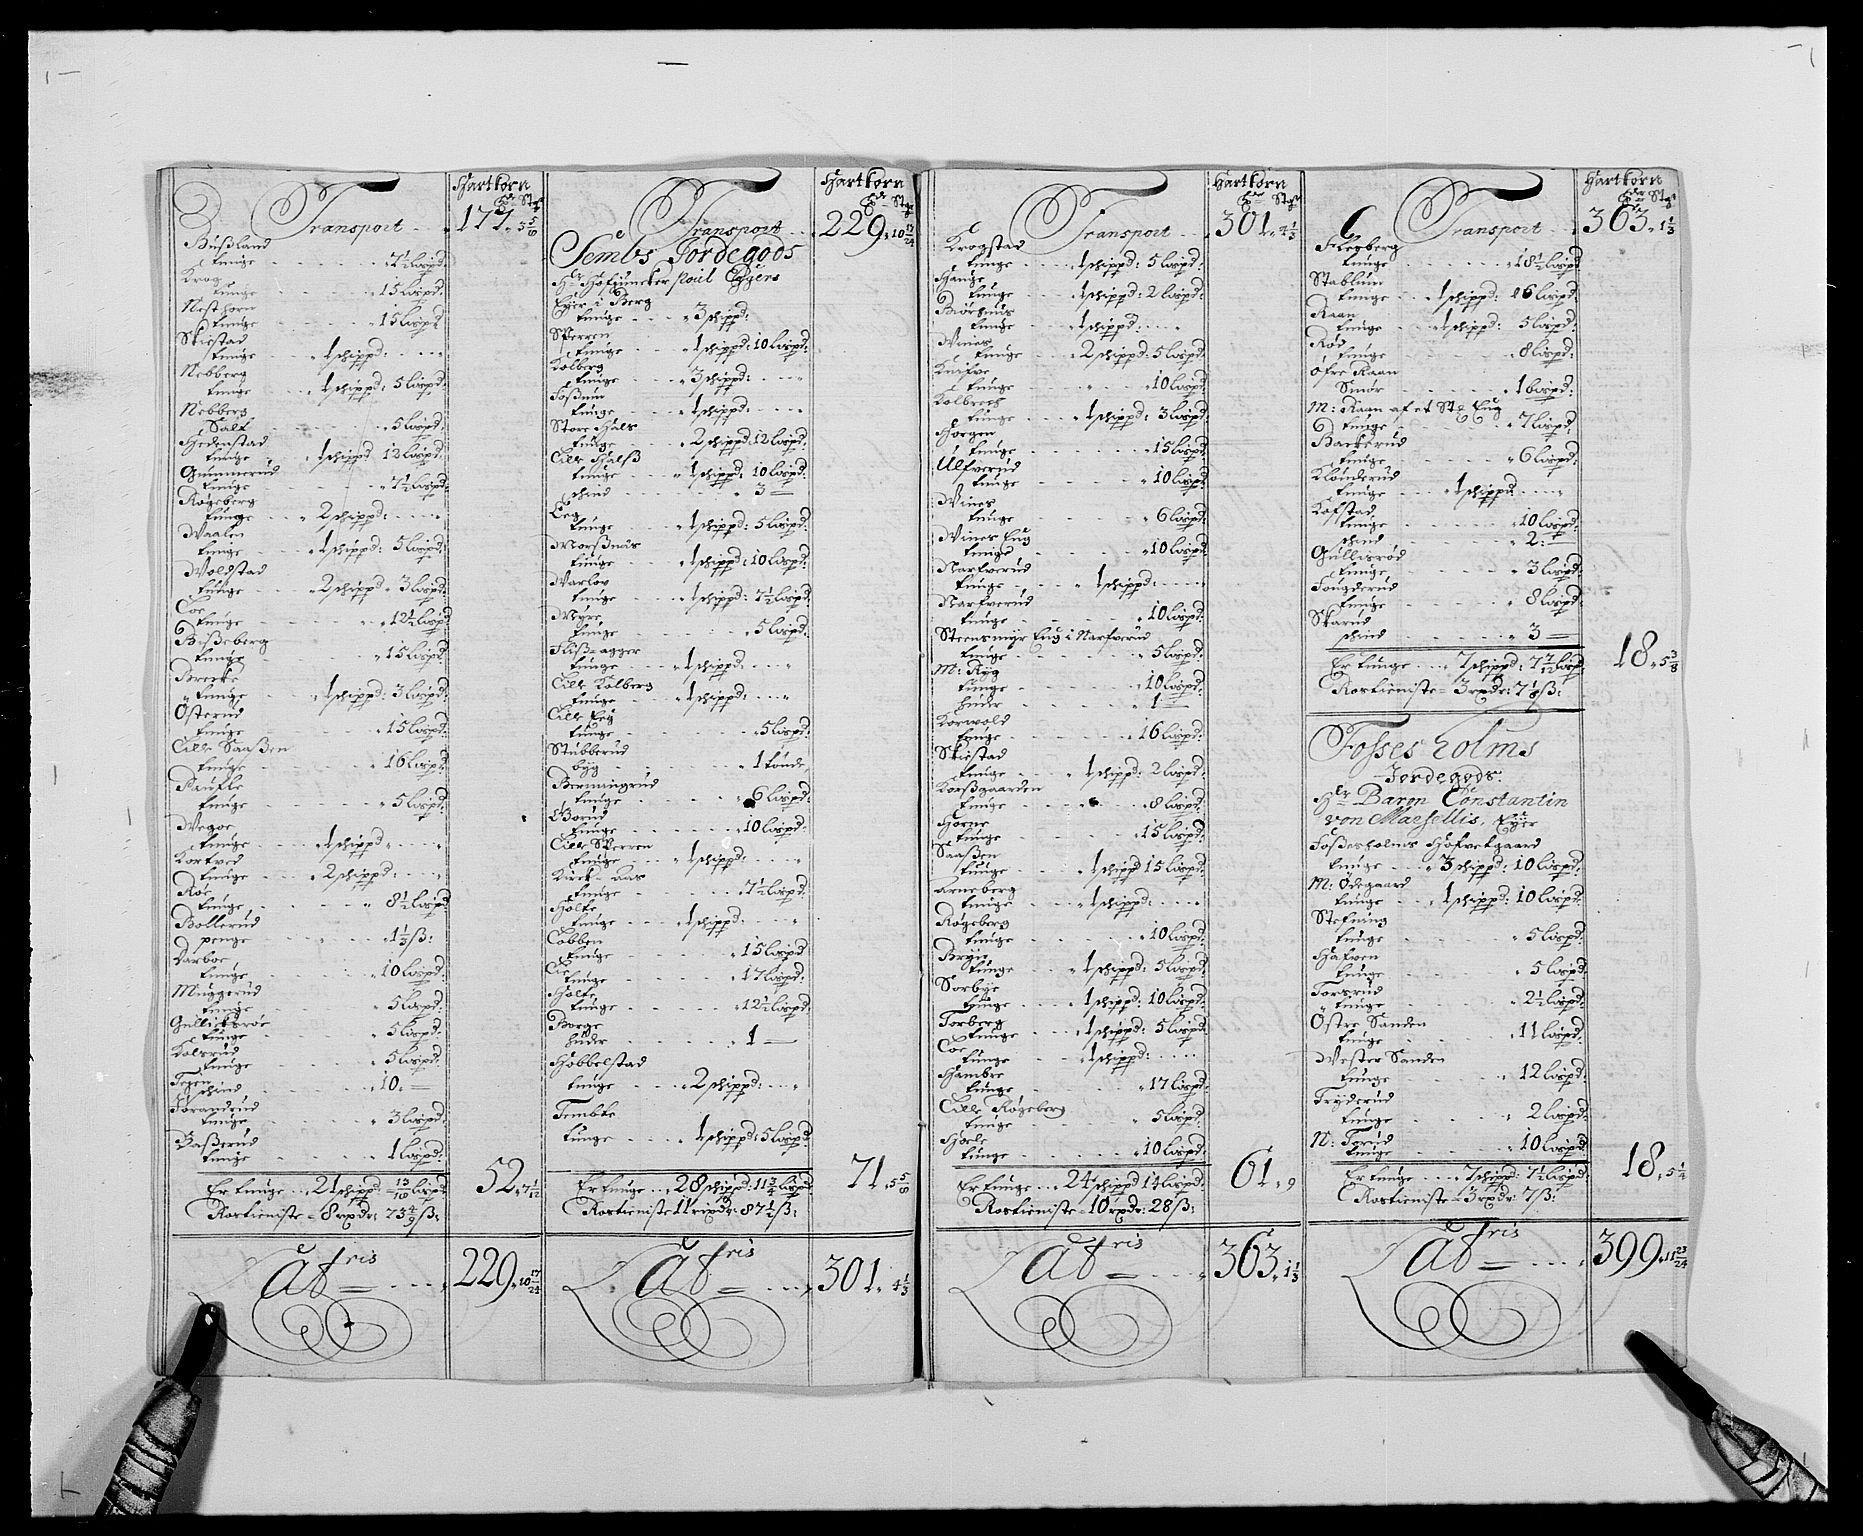 Transport
Hartkorn
177. 3 5/8
Bußland
tunge 7½ lispd:
Krog
tunge 15 lispd:
Nesthorn
tunge 15 lispd:
Skiestad
tunge 1 schippd:
Nebberg
tunge 1 schippd: 5 lispd:
Nebberg
Salt 5 lispd:
Hedenstad
tunge 1 schippd 12 lispd:
Gunnerud
tunge 7½ lispd:
Røgeberg
tunge 2 schippd:
Waalen
tunge 1 schippd: 5 lispd:
Woldstad
tunge 2 schippd 3 lispd:
Toe
tunge 12½ lispd
Bißeberg
tunge 15 lispd:
Brecke
tunge 1 schippd: 3 lispd:
Österud
tunge 15 lispd:
Lille Saaßen
tunge 16 lispd:
tunge 5 lispd:
Wegoe
tunge 1 schippd
Kortved
tunge 2 schippd:
Røe
tunge 8½ lispd
Bollerud
penge 1⅓ ß:
Varboe
tunge 10 lispd:
Muggerud
tunge 5 lispd:
Gullichsrøe
tunge 5 lispd:
Kolsrud
tunge 5 lispd:
Tegen
schind 10
Jørandrud
tunge 3 lispd:
Baßerud
tunge 1 lispd:
Er tunge 21 schippd 13/18 lispd
52. 7 1/12
Rostieniste 8 rixdr: 73 4/9 ß:
Latris
229. 10 17/24
Transport
Hartkorn
229. 10 17/24
Sembs Jordegods
Hr Hofjuncker Poul Eggers
Eyer i Berg
tunge 3 schippd:
Sperren
tunge 1 schippd: 10 lispd:
Kolberg
tunge 3 schippd:
Foßnum
tunge 1 schippd:
Store Hals
tunge 2 schippd: 12 lispd:
Lille Halß
tunge 1 schippd 10 lispd:
schind 3
Eeg
tunge 1 schippd: 5 lispd:
Morßnås
tunge 1 schippd: 10 lispd:
Varlov
tunge 1 schippd: 7½ lispd:
Myre
tunge 5 lispd:
Flißagger
tunge 1 schippd:
Lille Kolberg
tunge 1 schippd:
Lille Eeg
tunge 5 lispd:
Stubberud
byg 1 tønde
Bermingrud
tunge 6 lispd:
Borud
tunge 10 lispd:
Lille Sperren
tunge 1 schippd:
Kirck-Aas
tunge 7½ lispd:
Holte
tunge 1 schippd:
Lobben
tunge 15 lispd
Lie
tunge 17 lispd:
Holte
tunge 12½ lispd:
Borge
huder 1
Hobbelstad
tunge 2 schippd:
Tembte
tunge 1 schippd: 5 lispd:
Er tunge 28 schippd: 11¾ lispd
71. 5 5/8
Rostieniste 11 rixdr: 87½ ß:
Latris
301. 4⅓
Transport
Hartkorn
301. 4⅓
Krogstad
tunge 1 schippd: 5 lispd:
Hauge
tunge 1 schippd: 2 lispd:
Biørhuus
tunge 1 schippd:
Wines
tunge 2 schippd: 5 lispd:
Knifve
tunge 10 lispd:
Kolbreck
tunge 1 schippd: 3 lispd:
Horgen
tunge 15 lispd:
Ulfverud
tunge 10 lispd:
Wines
tunge 6 lispd:
Wines Eng
tunge 10 lispd:
Narfverud
tunge 1 schippd:
Narfverud
tunge 10 lispd:
Steensmyr Eng i Narfverud
tunge 5 lispd:
M: Ryg
tunge 10 lispd:
huder 1
Korwold
tunge 16 lispd:
Skiestad
tunge 1 schippd: 2 lispd:
Korßgaarden
tunge 8 lispd:
Horne
tunge 15 lispd:
Saaßen
tunge 1 schippd 15 lispd:
Arneberg
tunge 1 schippd:
Røgeberg
tunge 10 lispd:
Bryn
tunge 1 schippd: 5 lispd:
Sorbye
tunge 1 schippd: 10 lispd:
Torberg
tunge 1 schippd: 5 lispd:
Loe
tunge 1 schippd:
Hambre
tunge 17 lispd:
Lille Røgeberg
tunge 5 lispd:
Hørle
tunge 10 lispd:
Er tunge 24 schippd 14 lispd:
61. 9
Rostieniste 10 rixdr: 28 ß:
Latris
363. 1⅓
Transport
Hartkorn
363. 1⅓
Flesberg
tunge 18½ lispd
Stablum
tunge 1 schippd: 6 lispd:
Raan
tunge 1 schippd: 5 lispd:
Røe
tunge 8 lispd:
Øfre Raan
Smør 1 bispd:
M: Raan af et St: Eng
tunge 7 lispd:
Backerud
tunge 6 lispd:
Klønderud
tunge 1 schippd:
Kofstad
tunge 10 lispd:
schind 2:
Gullisrød
tunge 3 lispd:
Jongderud
tunge 8 lispd:
Skarud
schind 3
Er tunge 7 schippd: 7 7/12 lispd
18. 5⅜
Rostieniste 3 rxdr: 7⅛ ß:
Fosses holms
Jordegods.
Hr Baron Constantin
von Marsellis, Eyer
Foßesholms Hofvetgaard
tunge 3 schippd: 10 lispd:
M: Ödegaard
tunge 1 schippd: 10 lispd:
Stefning
tunge 5 lispd:
Hafven
tunge 5 lispd:
Torsrud
tunge 2½ lispd:
Östre Sanden
tunge 11 lispd:
Wester Sanden
tunge 12 lispd:
Fryderud
tunge 2 lispd:
N: Torud
tunge 10 lispd:
Er tunge 7 schippd 7½ lispd:
18. 5¼
Rostieniste 3 rxdr 7 ß:
Latris
399. 11 23/24